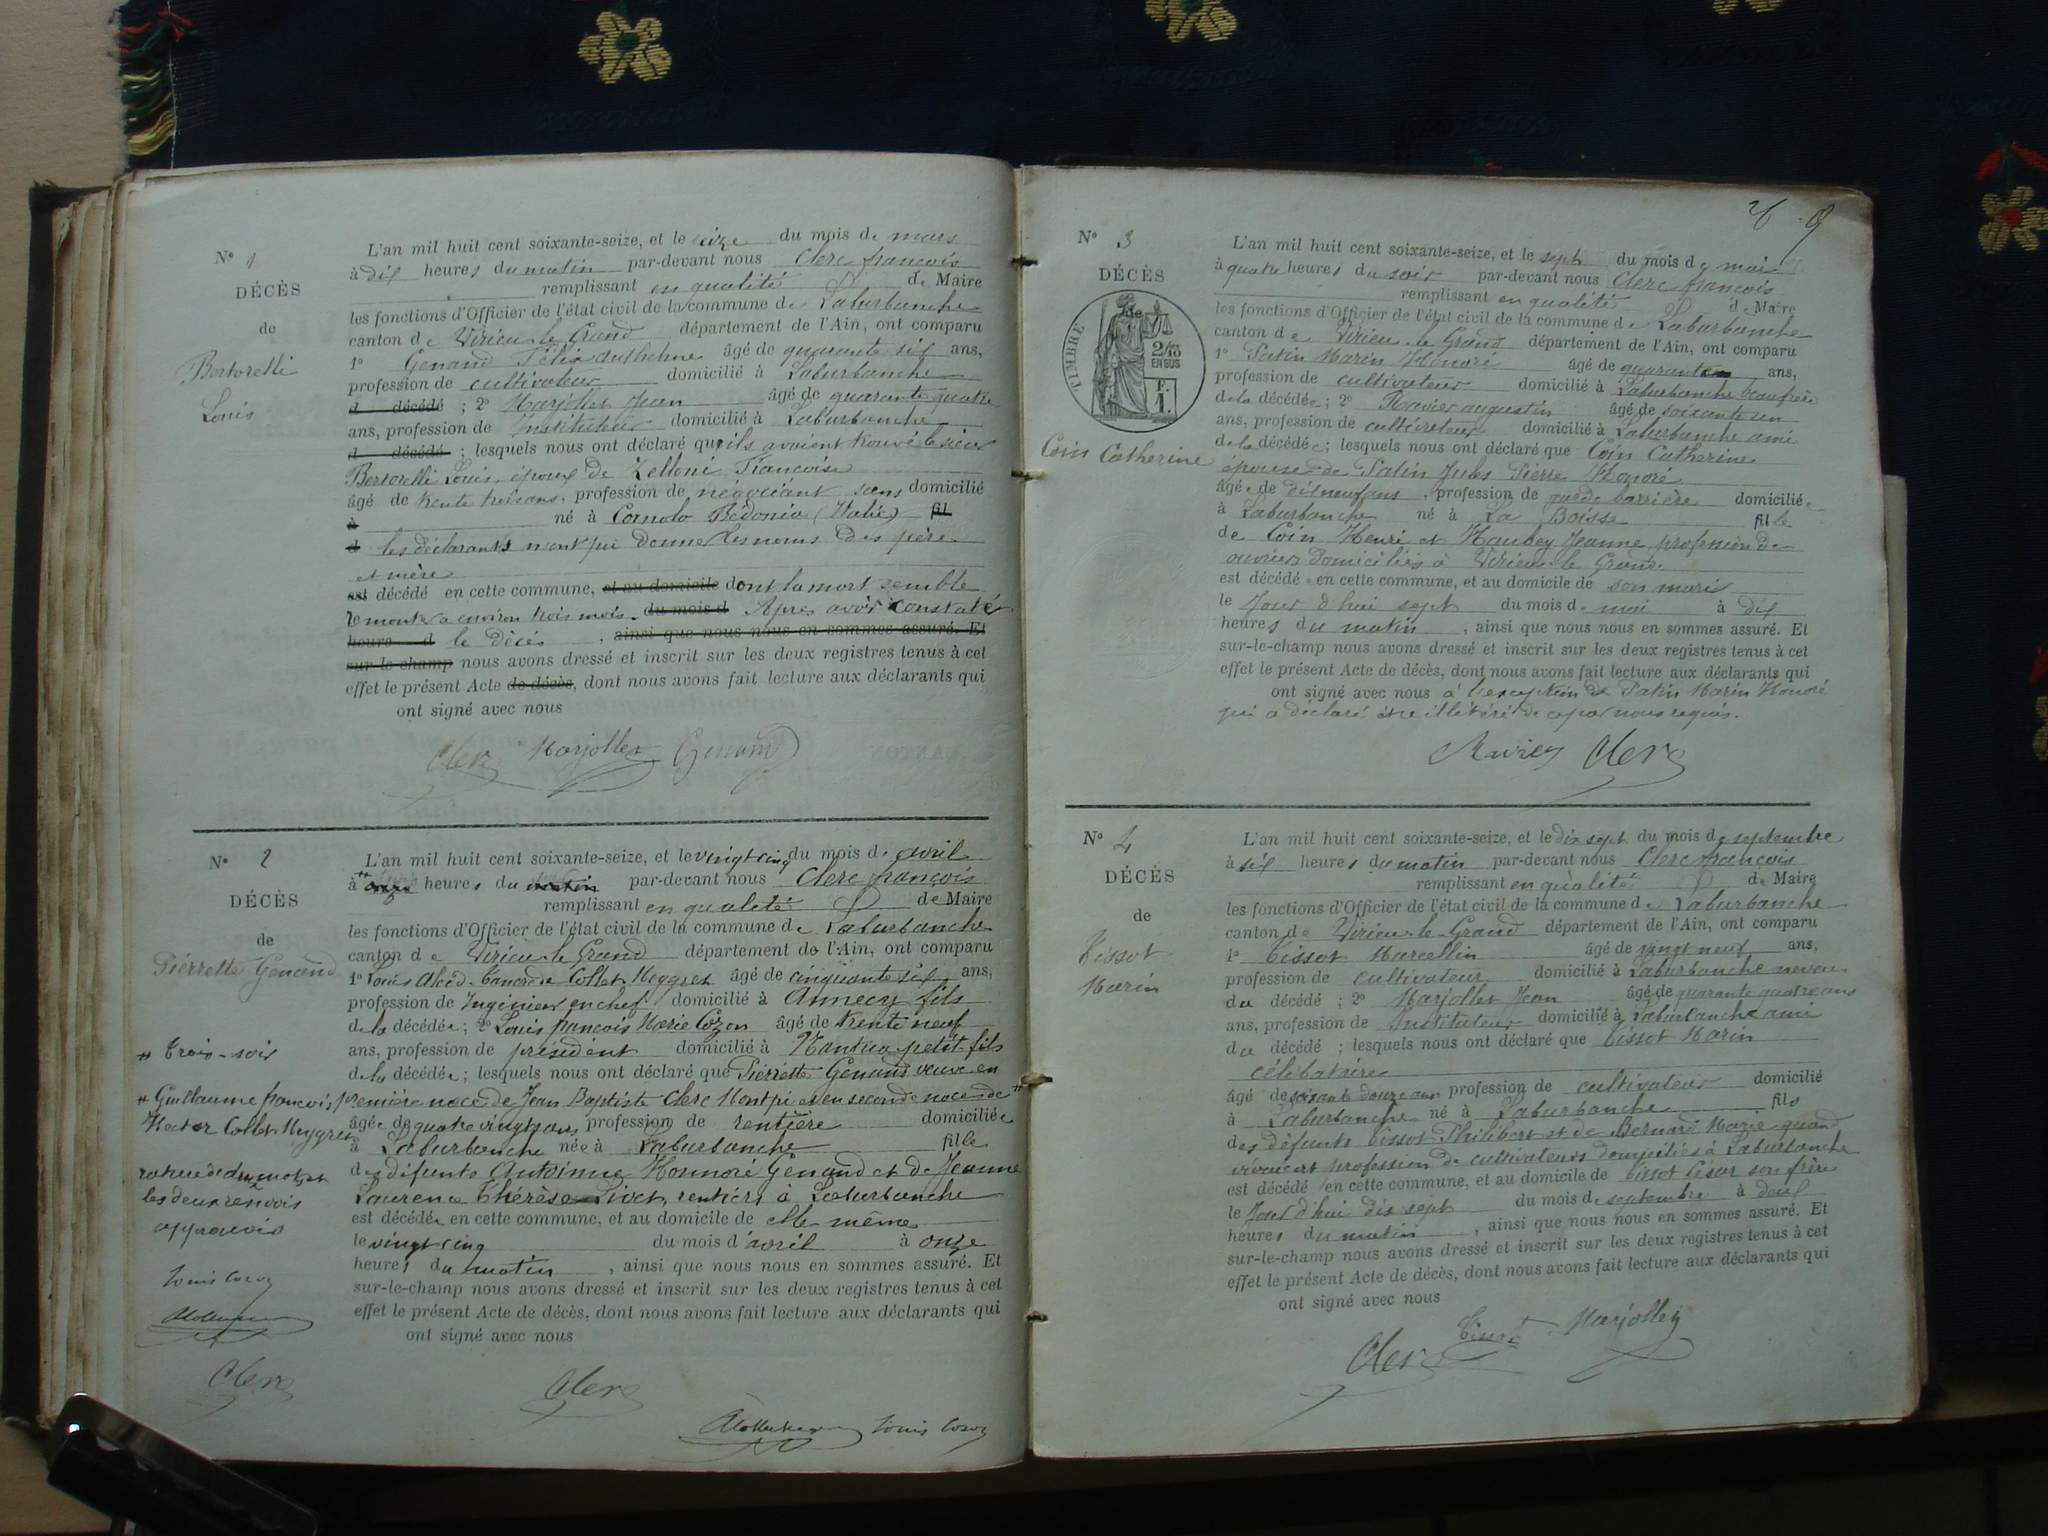 N° 1
DÉCÈS
de
Bertorelli
Louis
L'an mil huit cent soixante-seize, et le seize du mois de mars
à dix heures du matin par-devant nous Clerc françois
remplissant en qualité de Maire
les fonctions d'Officier de l'état civil de la commune de Laburbanche
canton de Virieu-le-Grand département de l'Ain, ont comparu
1° Genand Félix âgé de quarante six ans,
profession de cultivateur domicilié à Laburbanche
d décédé ; 2° Marjollet Jean âgé de quarante quatre
ans, profession de Instituteur domicilié à Laburbanche
d décédé ; lesquels nous ont déclaré qu'ils avaient trouvé le sieur
Bertorelli Louis, époux de Zelloni Françoise
âgé de trente trois ans, profession de négociant sans domicilié
à né à Comolo Bédonia (Italie) fil
d les déclarants n'ont pu donner les noms des père
et mère
est décédé en cette commune, et au domicile dont la mort semble
remonter a environ trois mois. du mois d Après avoir constaté
heure d le décés , ainsi que nous nous en sommes assuré. Et
sur-le-champ nous avons dressé et inscrit sur les deux registres tenus à cet
effet le présent Acte de décès, dont nous avons fait lecture aux déclarants qui
ont signé avec nous
Clerc Marjollet Genand
N° 2
DÉCÈS
de
Pierrette Genand
L'an mil huit cent soixante-seize, et le vingt cinq du mois d'avril
à onze heures du matin par-devant nous Clerc françois
remplissant en qualité de Maire
les fonctions d'Officier de l'état civil de la commune de Laburbanche
canton de Virieu-le-Grand département de l'Ain, ont comparu
1° Louis Collet-Meygret âgé de cinquante six ans,
profession de Ingénieur en chef domicilié à Annecy fils
de la décédée ; 2° Louis françois Marie Cozon âgé de trente neuf
ans, profession de président domicilié à Nantua petit-fils
de la décédée ; lesquels nous ont déclaré que Pierrette Genand veuve en
première noce de Jean Baptiste Clerc Montpi et en seconde noce de "
âgée de quatre vingt ans, profession de rentière domiciliée
à Laburbanche née à Laburbanche fille
des défunts Antoinne Honnoré Genand et de Jeanne
Laurence Thérèse Livet, rentiers à Laburbanche
est décédée en cette commune, et au domicile de elle même
le vingt cinq du mois d'avril à onze
heures du matin , ainsi que nous nous en sommes assuré. Et
sur-le-champ nous avons dressé et inscrit sur les deux registres tenus à cet
effet le présent Acte de décès, dont nous avons fait lecture aux déclarants qui
ont signé avec nous
" trois - soir
" Guillaume françois
Hector Collet-Meygret
les deux renvois
approuvés
Louis Cozon
Clerc
Clerc
Louis Cozon
26 - 9
N° 3
DÉCÈS
TIMBRE
2/10
EN SUS
F.
1.
Coin Catherine
L'an mil huit cent soixante-seize, et le sept du mois de mai
à quatre heures du soir par-devant nous Clerc francois
remplissant en qualité de Maire
les fonctions d'Officier de l'état civil de la commune de Laburbanche
canton de Virieu-le-Grand département de l'Ain, ont comparu
1° Patin Marin Honoré âgé de quarante ans,
profession de cultivateur domicilié à Laburbanche beaufrère
de la décédée ; 2° Ravier augustin âgé de soixante un
ans, profession de cultivateur domicilié à Laburbanche ami
de la décédée ; lesquels nous ont déclaré que Coin Catherine
épouse de Patin Jules Pierre Honoré
âgée de dix neuf ans , profession de garde barrière domiciliée
à Laburbanche né à La Boisse fille
de Coin Henri et Maubey Jeanne profession de
ouvriers domiciliés à Virieu-le-Grand
est décédé en cette commune, et au domicile de son mari
le Jour d'hui sept du mois de mai à dix
heures du matin , ainsi que nous nous en sommes assuré. Et
sur-le-champ nous avons dressé et inscrit sur les deux registres tenus à cet
effet le présent Acte de décès, dont nous avons fait lecture aux déclarants qui
ont signé avec nous à l'exception de Patin Marin Honoré
qui a déclaré être illétéré de ce par nous requis.
Ravier Clerc
N° 4
DÉCÈS
de
Tissot
Marin
L'an mil huit cent soixante-seize, et le dix sept du mois de septembre
à six heures du matin par-devant nous Clerc françois
remplissant en qualité de Maire
les fonctions d'Officier de l'état civil de la commune de Laburbanche
canton de Virieu-le-Grand département de l'Ain, ont comparu
1° Tissot Marcellin âgé de vingt neuf ans,
profession de cultivateur domicilié à Laburbanche neveu
du décédé ; 2° Marjollet Jean âgé de quarante quatre ans
ans, profession de Instituteur domicilié à Laburbanche ami
du décédé ; lesquels nous ont déclaré que Tissot Marin
célibataire
âgé de soixante douze ans profession de cultivateur domicilié
à Laburbanche né à Laburbanche fils
des défunts Tissot Philibert et de Bernard Marie quand
vivaient profession de cultivateurs domiciliés à Laburbanche
est décédé en cette commune, et au domicile de Tissot César son frère
le Jour d'hui dix sept du mois de septembre à deux
heures du matin , ainsi que nous nous en sommes assuré. Et
sur-le-champ nous avons dressé et inscrit sur les deux registres tenus à cet
effet le présent Acte de décès, dont nous avons fait lecture aux déclarants qui
ont signé avec nous
Clerc Tissot Marjollet